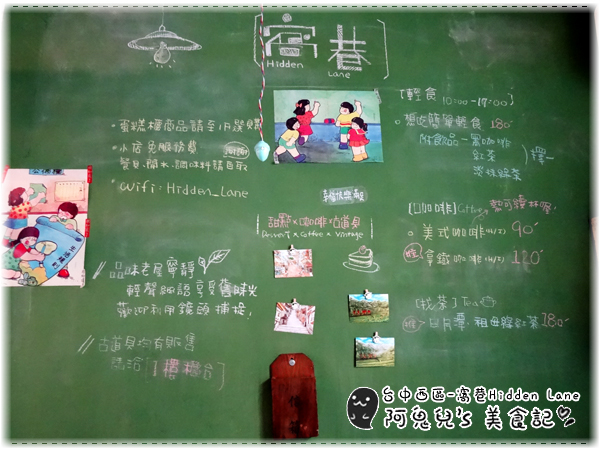 窩巷
Hidden Lane
。蛋糕櫃商品請至1F選購
。小店免服務費
餐具、開水、調味料請自取
。Wifi：Hidden_Lane
甜點×咖啡×古道具
Dessert × Coffee × Vintage
//品味老屋寧靜
輕聲細語享受舊時光
歡迎利用鏡頭捕捉！
//古道具均有販售
請洽[1樓櫃台]
[輕食 10:00-17:00]
。想吃簡單輕食 180
附飲品-黑咖啡
紅茶
擇一
[咖啡] Coffee
。美式咖啡(H/I) 90
拿鐵咖啡(H/I) 120
[找茶] Tea
祖母綠紅茶 180
台中西區-窩巷Hidden Lane
阿兔兒's 美食記